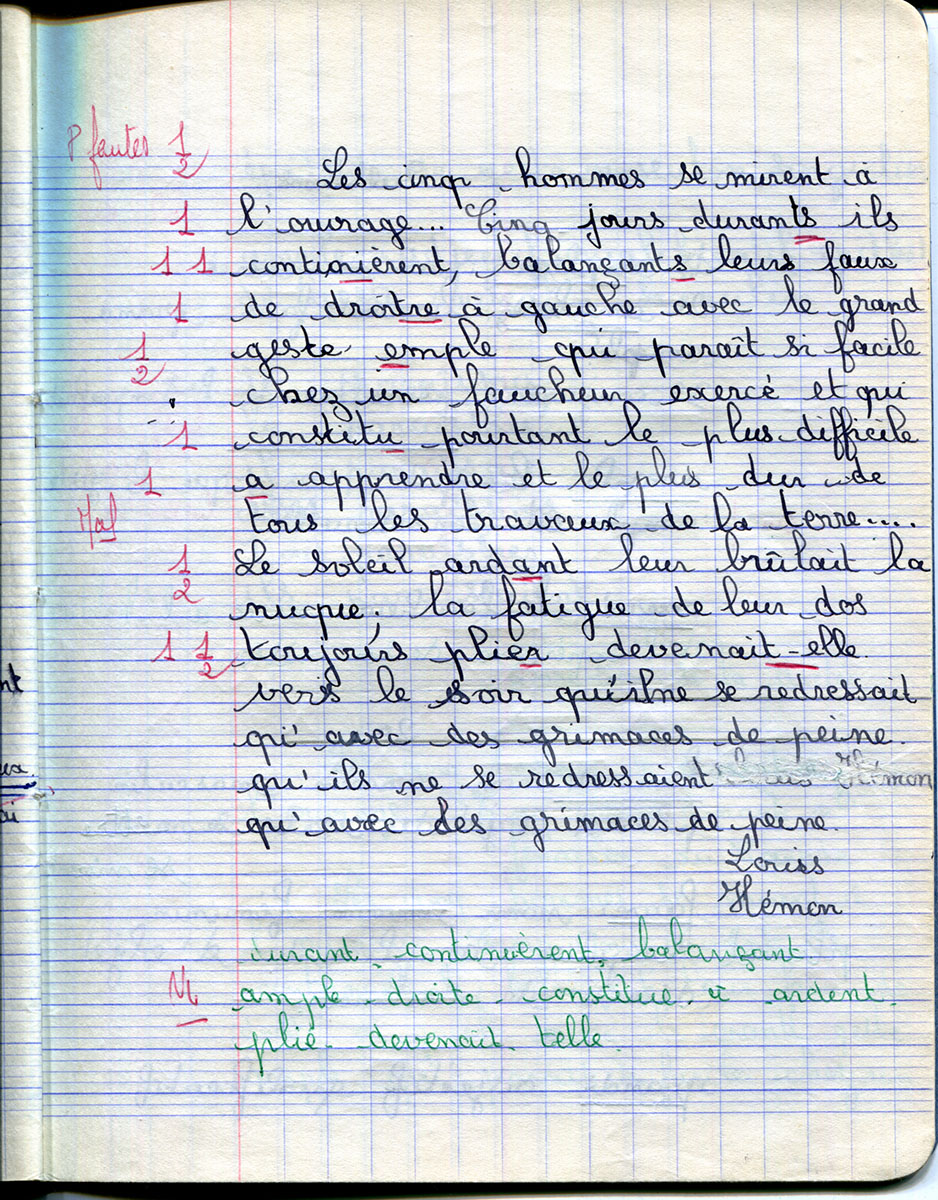 8 fautes 1/2
Les cinq hommes se mirent à
1 l'ouvrage... Cinq jours durants ils
1 1 continièrent, balançants leurs faux
1 de droitre à gauche avec le grand
1/2 geste emple qui paraît si facile
chez un faucheur exercé et qui
1 constitu pourtant le plus difficile
1 a apprendre et le plus dur de
Mal tous les travaux de la terre....
1/2 Le soleil ardant leur brûlait la
nuque, la fatigue de leur dos
1 1/2 toujours plier devenait-elle
vers le soir qu'ilne se redressait
qu'avec des grimaces de peine.
qu'ils ne se redressaient Hémon
qu'avec des grimaces de peine.
Louiss
Hémon
durant, continuèrent, balançant.
M ample - droite - constitue - à ardent.
plié - devenait - telle.
nt
ux